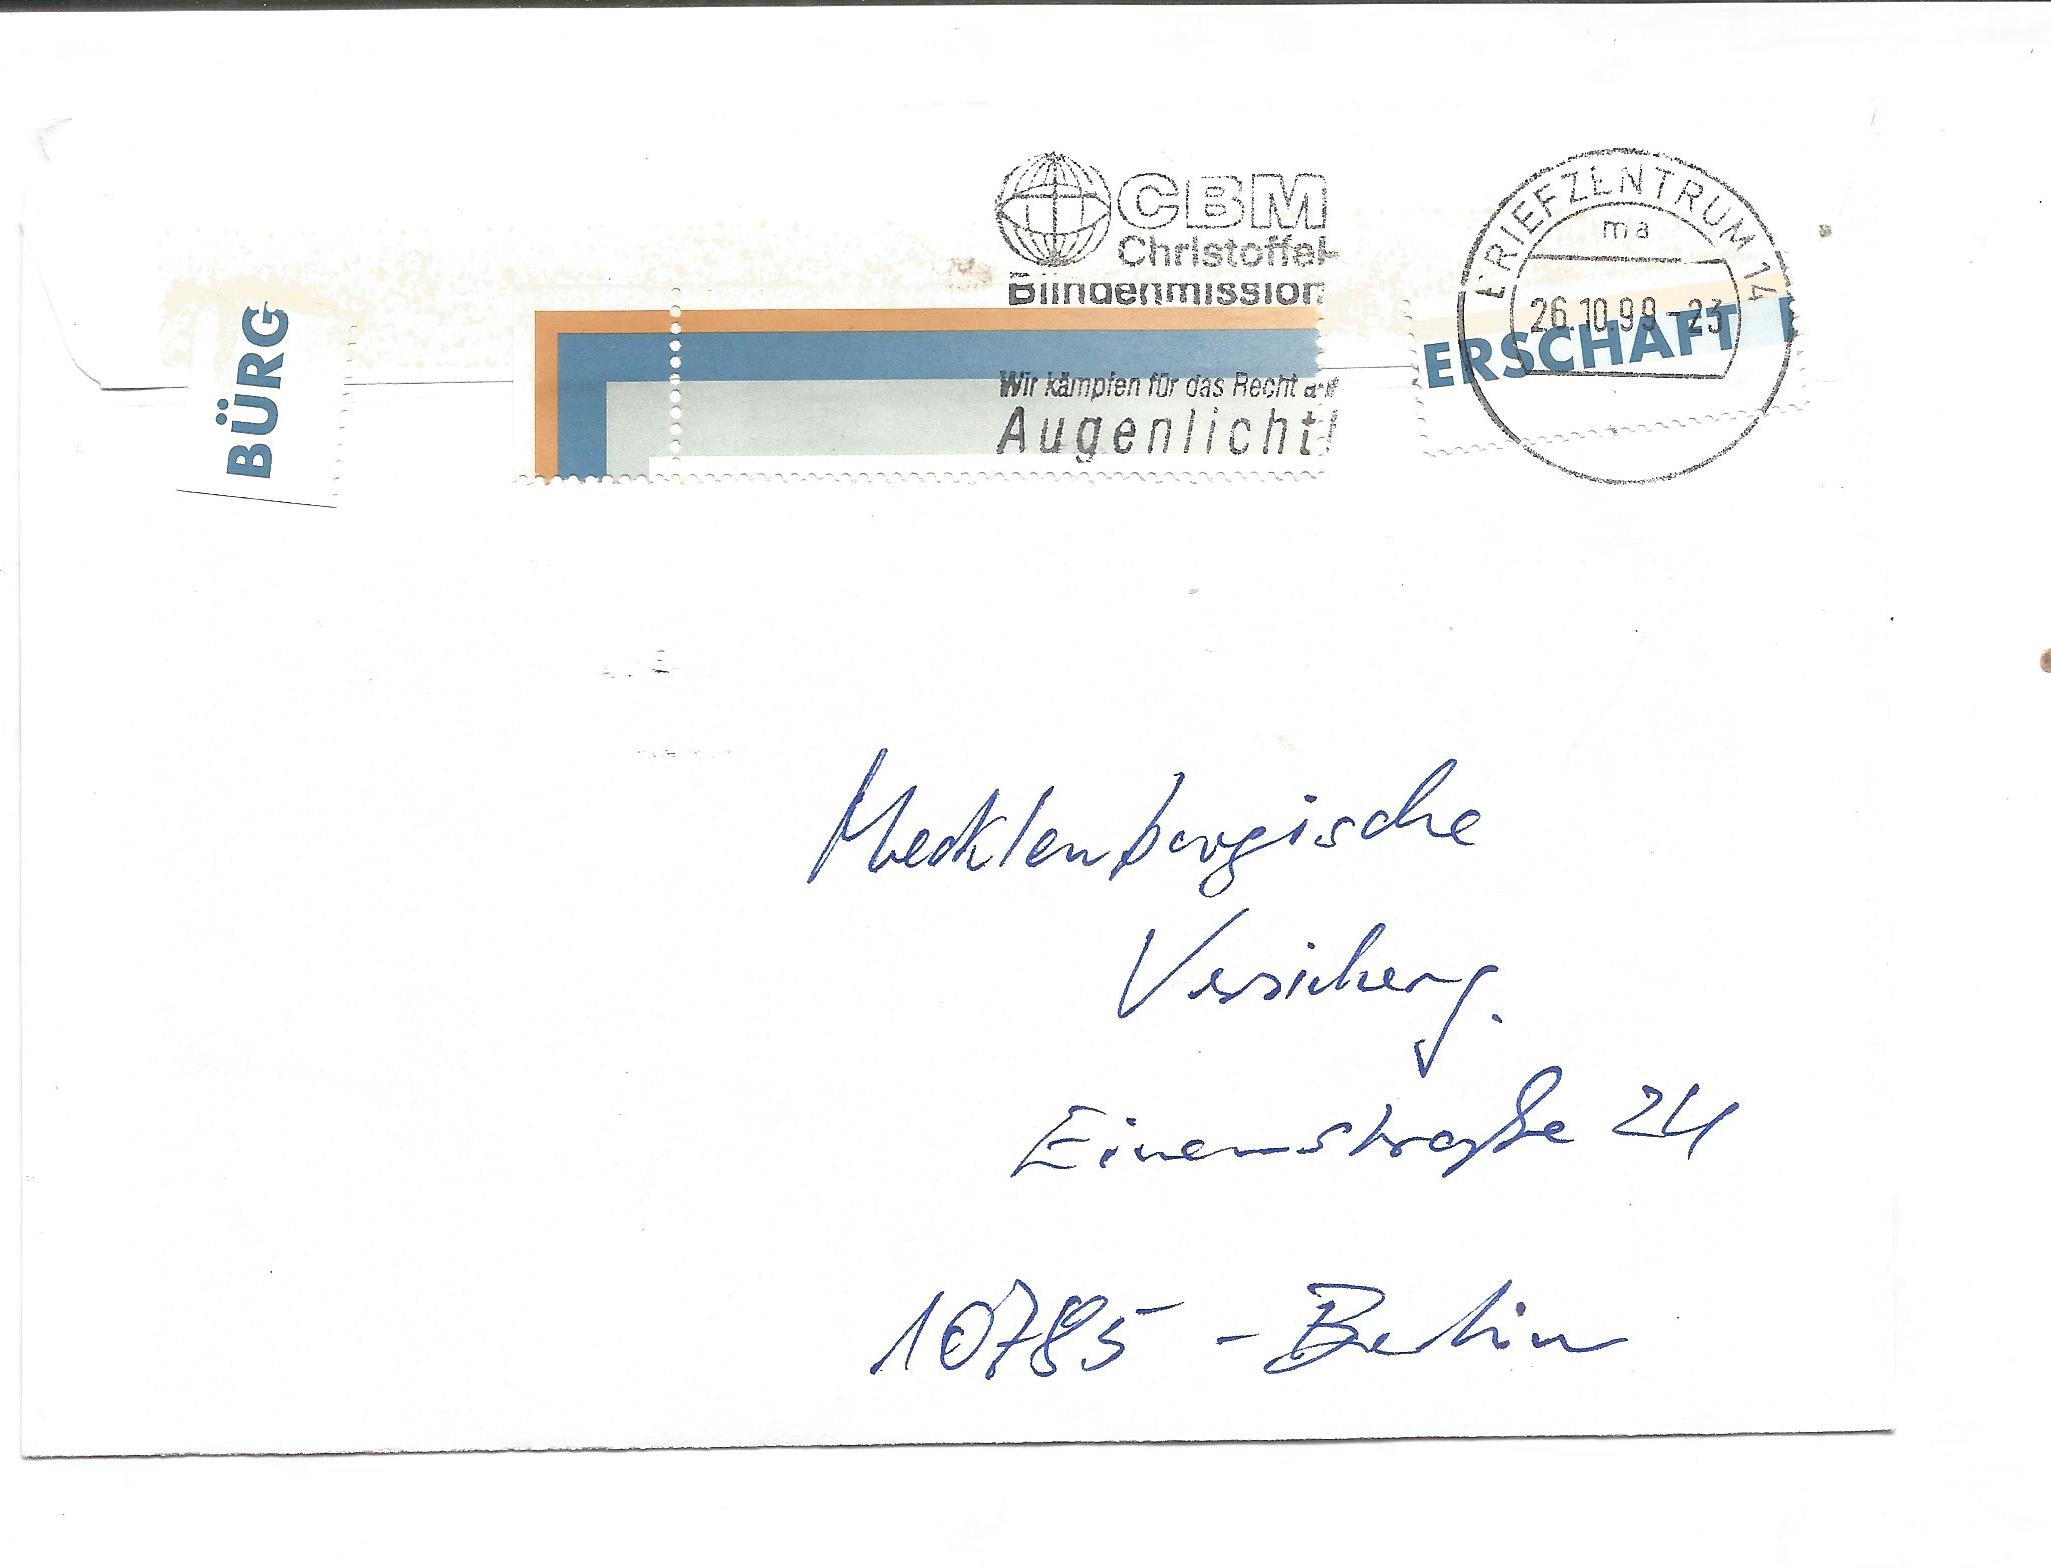 CBM
Christoffel-
Blindenmission
Wir kämpfen für das Recht auf
Augenlicht!
BRIEFZENTRUM 14
ma
26.10.99-23
BÜRG
ERSCHAFT
Mecklenburgische
Versicherung.
Einemstraße 24
10785 - Berlin